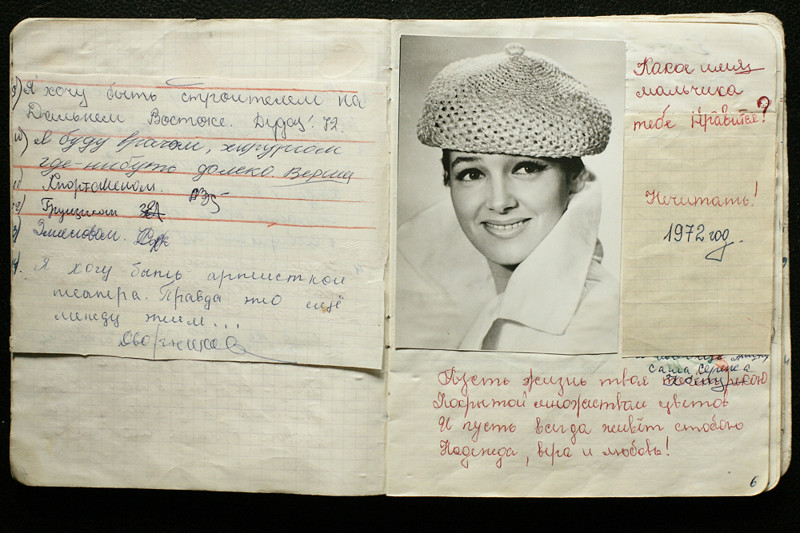 9) Я хочу быть строителем на
Дальнем Востоке. 72.
10) Я буду врачом, хирургом
где-нибуть далеко.
11) Спортсменом.
12) Грущиком
3)
4. Я хочу быть артисткой
театера. Правда это ещё
между тем...
Какое имя
мальчика
тебе нравится?
Нечитать!
1972 год.
саша, серёжа
Пусть жизнь твоя
Покрытой множеством цветов
И пусть всегда живёт стобою
Надежда, вера и любовь!
6